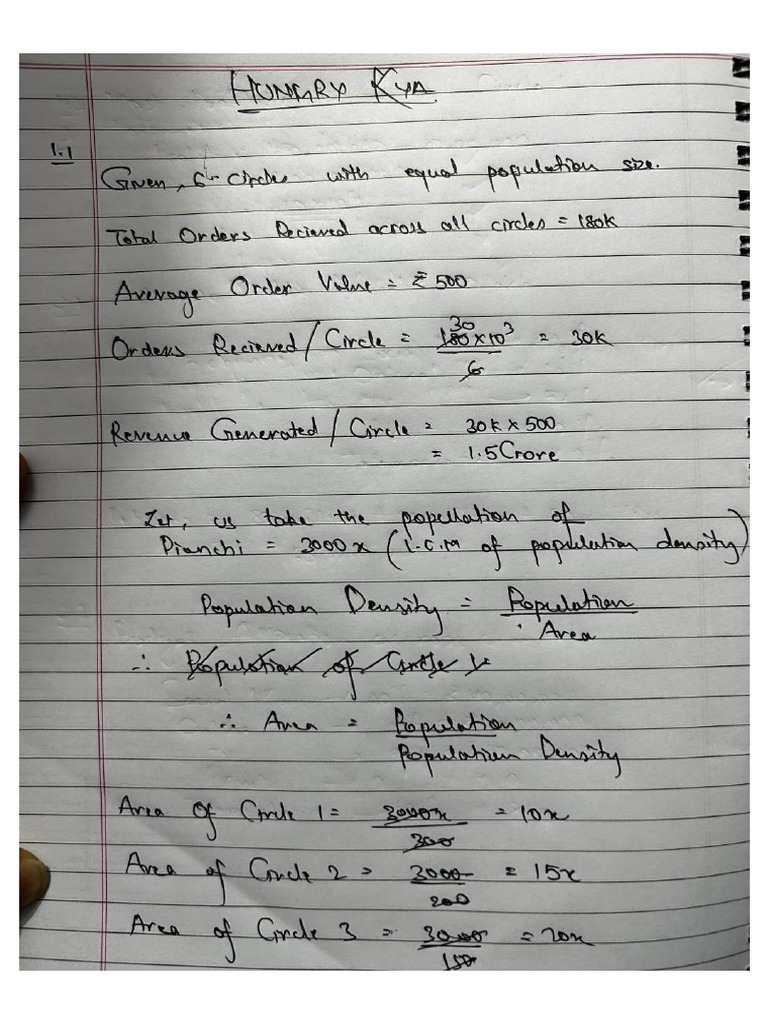 HUNGRY KYA
1.1
Given, 6 circles with equal population size.
Total Orders Recieved across all circles = 180K
Average Order Value = ₹500
Orders Recieved/Circle = 30 180×10³ / 6 = 30K
Revenue Generated/Circle = 30K × 500
= 1.5Crore
Let, us take the popullation of
Pianchi = 3000x (L.C.M of population density)
Population Density = Population / Area
∴ Population of Circle 1=
∴ Area = Population / Population Density
Area of Circle 1 = 3000x / 300 = 10x
Area of Circle 2 = 3000 / 200 = 15x
Area of Circle 3 = 3000 / 150 = 20x